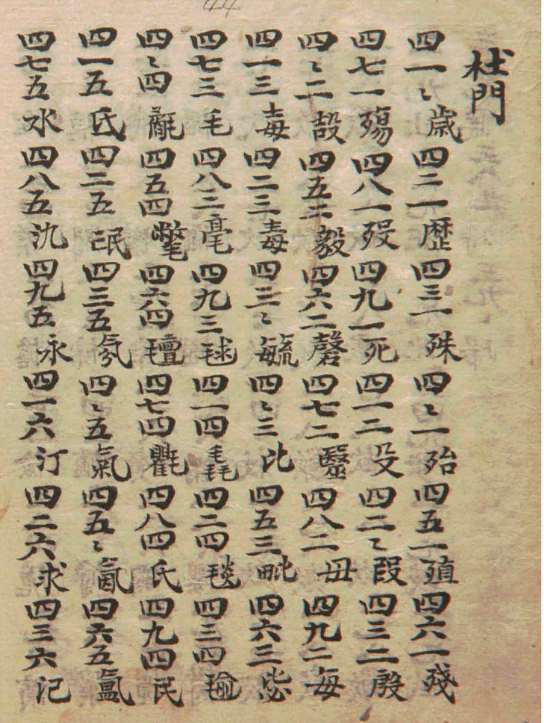 杜門
四一〻歳四二一歷四三一殊四〻一殆四五一殖四六一殘
四七一殤四八一殁四九一死四一二殳四二〻段四三二殿
四〻二四五二毅四六二磬四七二毉四八二毋四九二每
四一三毒四二三毒四三〻毓四〻三比四五三毗四六三毖
四七三毛四八三毫四九三毬四一四毳四二四毯四三四毹
四〻四四五四氅四六四氊四七四氍四八四氏四九四民
四一五氐四二五氓四三五氛四〻五氣四五〻氤四六五氳
四七五水四八五氿四九五永四一六汀四二六求四三六氾